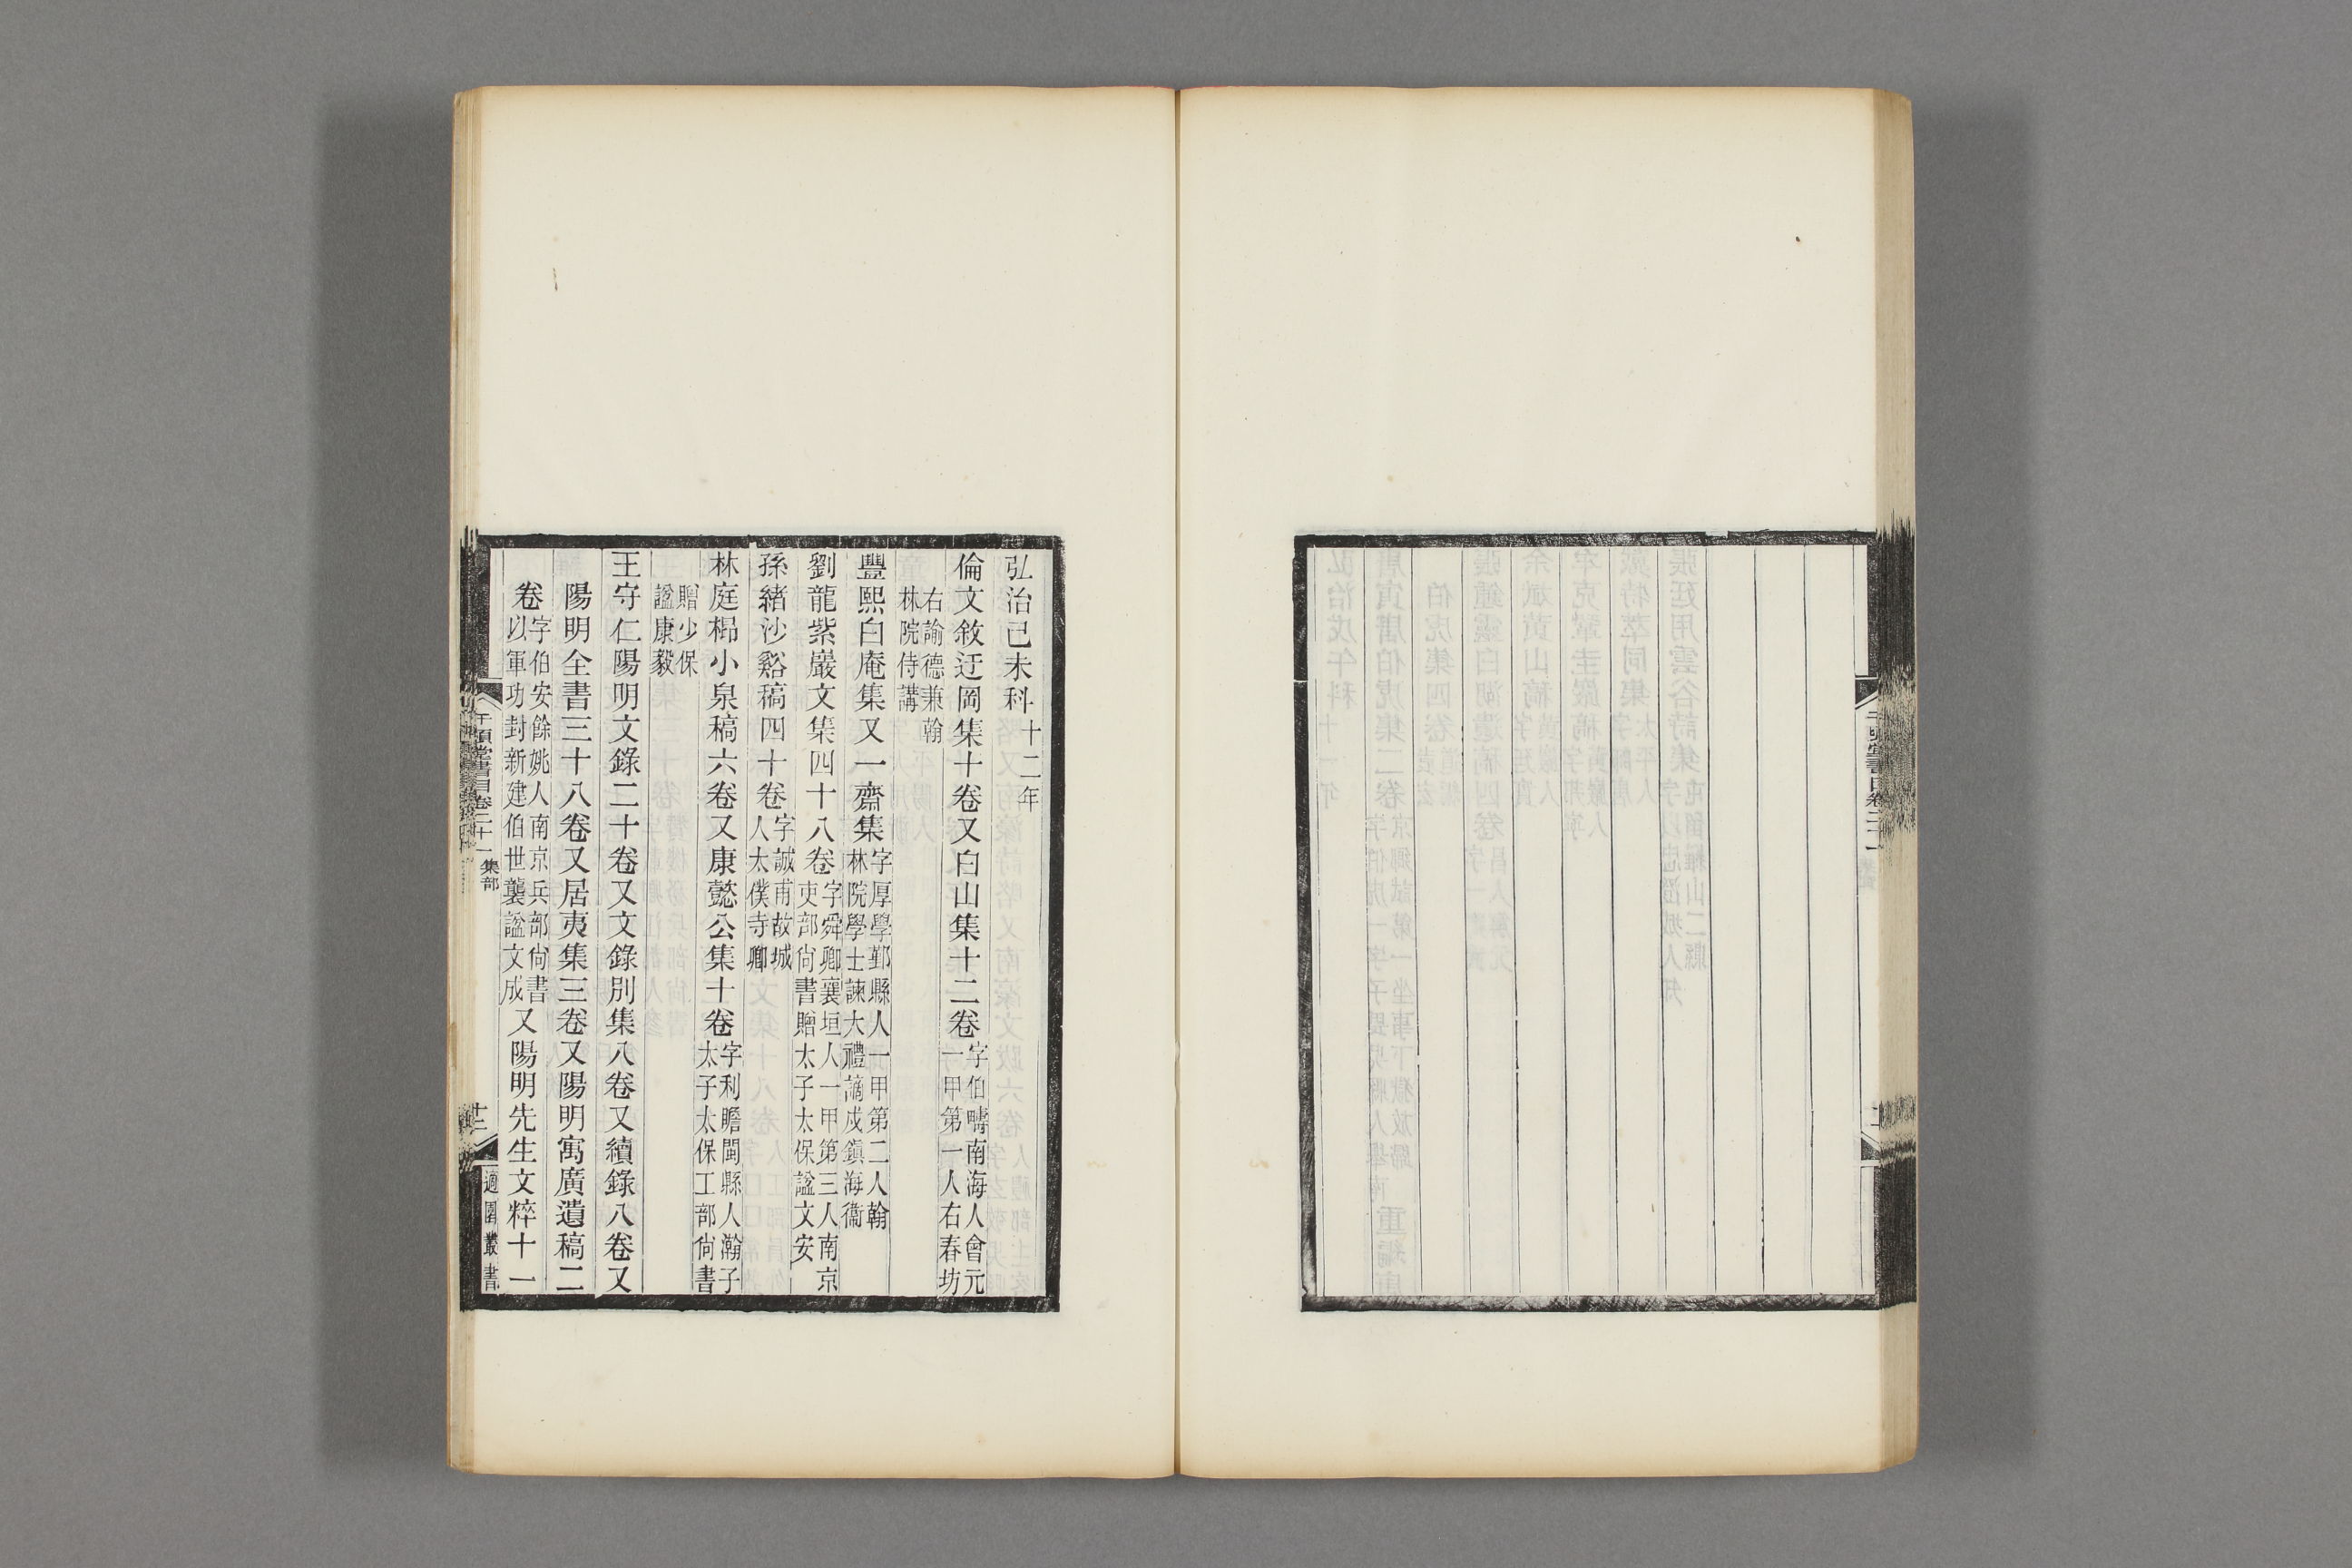 弘治己未科十二年
倫文敘迂岡集十卷又白山集十二卷字伯疇南海人會元一甲第一人右春坊
右諭德兼翰林院侍講
豐熙白庵集又一齋集字厚學鄞縣人一甲第二人翰林院學士諫大禮謫戍鎮海衞
劉龍紫巖文集四十八卷字舜卿襄垣人一甲第三人南京吏部尙書贈太子太保諡文安
孫緒沙谿稿四十卷字誠甫故城人太僕寺卿
林庭㭿小泉稿六卷又康懿公集十卷字利瞻閩縣人瀚子太子太保工部尙書
贈少保諡康毅
王守仁陽明文錄二十卷又文錄別集八卷又續錄八卷又
陽明全書三十八卷又居夷集三卷又陽明寓廣遺稿二
卷字伯安餘姚人南京兵部尙書以軍功封新建伯世襲諡文成又陽明先生文粹十一
千頃堂書目卷二十一 集部
十二
適園叢書